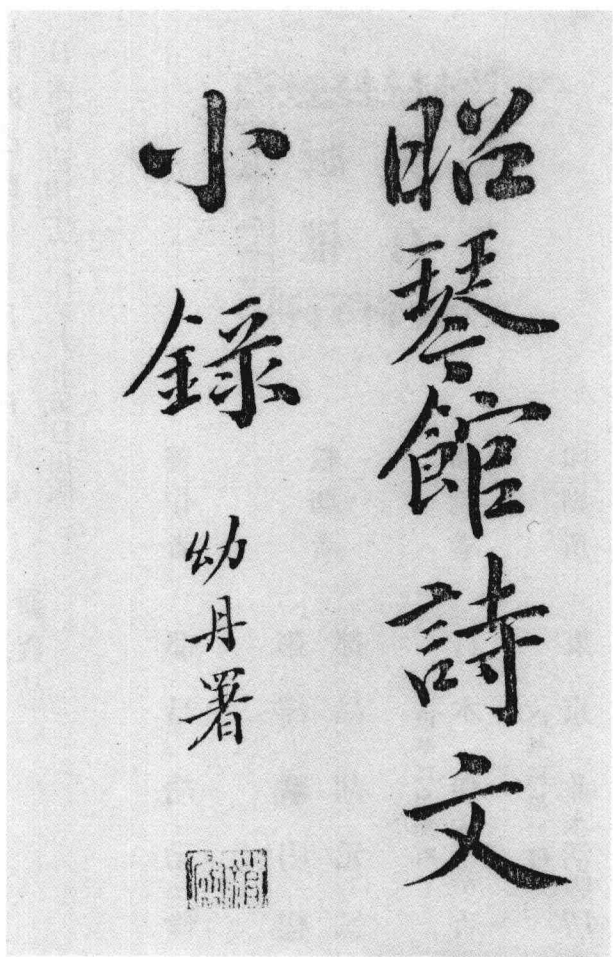 昭琴館詩文
小錄
幼丹署